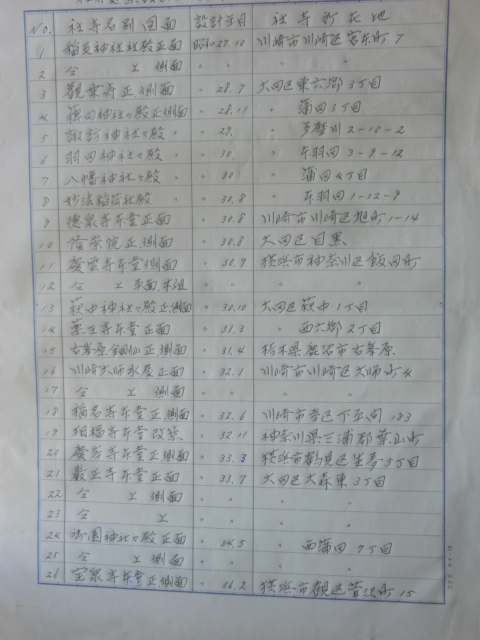 No. 社寺名別図面 設計年月 社寺所在地
1 稲毛神社社殿正面 昭和27.10 川崎市川崎区宮本町7
2 仝 上 側面 〃 〃
3 観乗寺正側面 〃 28.7 大田区東六郷3丁目
4 蒲田神社々殿正側面 〃 28.11 〃 蒲田3丁目
5 諏訪神社々殿 〃 〃 29. 〃 多摩川2-10-2
6 羽田神社々殿 〃 〃 30. 〃 本羽田3-9-12
7 八幡神社々殿 〃 〃 30 〃 蒲田4丁目
8 妙法稲荷社殿 〃 30.8 〃 本羽田1-12-9
9 徳泉寺本堂正面 〃 30.8 川崎市川崎区旭町1-14
10 院正側面 〃 30.8 大田区目黒
11 慶雲寺本堂側面 〃 30.9 横浜市神奈川区飯田町
12 仝 上 平面 〃 〃
13 萩中神社々殿正側面 〃 30.10 大田区萩中1丁目
14 寺本堂正面 〃 31.3 〃 西六郷2丁目
15 古峯原金剛山正側面 〃 31.4 栃木県鹿沼市古峯原
16 川崎大師水屋正面 〃 32.1 川崎市川崎区大師町4
17 仝 上 側面 〃 〃
18 称名寺本堂正側面 〃 32.6 川崎市幸区下平間183
19 相福寺本堂改築 〃 32.11 神奈川県三浦郡葉山町
20 寺本堂正側面 〃 33.3 横浜市鶴見区生麦3丁目
21 厳正寺本堂正面 〃 33.7 大田区大森東3丁目
22 仝 上 側面 〃 〃
23 仝 上 〃 〃
24 御園神社々殿正面 〃 34.5 〃 西蒲田7丁目
25 仝 上 側面 〃 〃
26 宝泉寺本堂正側面 〃 36.2 横浜市鶴見区菅沢町15